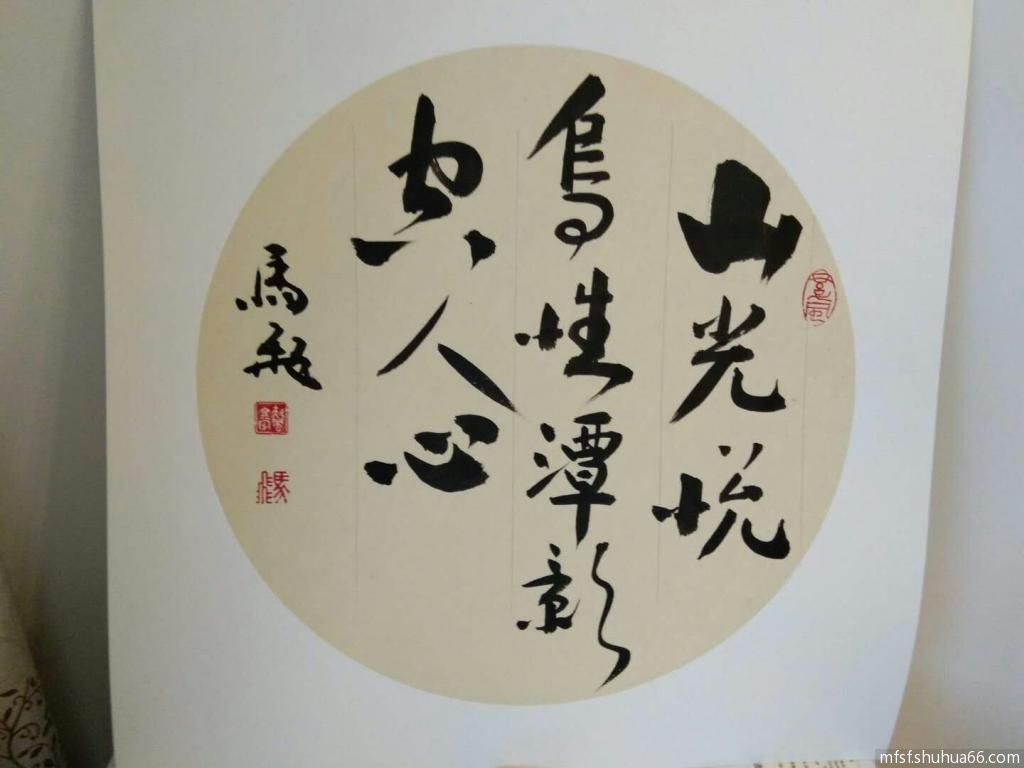 山光悦
鳥性潭影
空人心
馬
mfsf.shuhua66.com